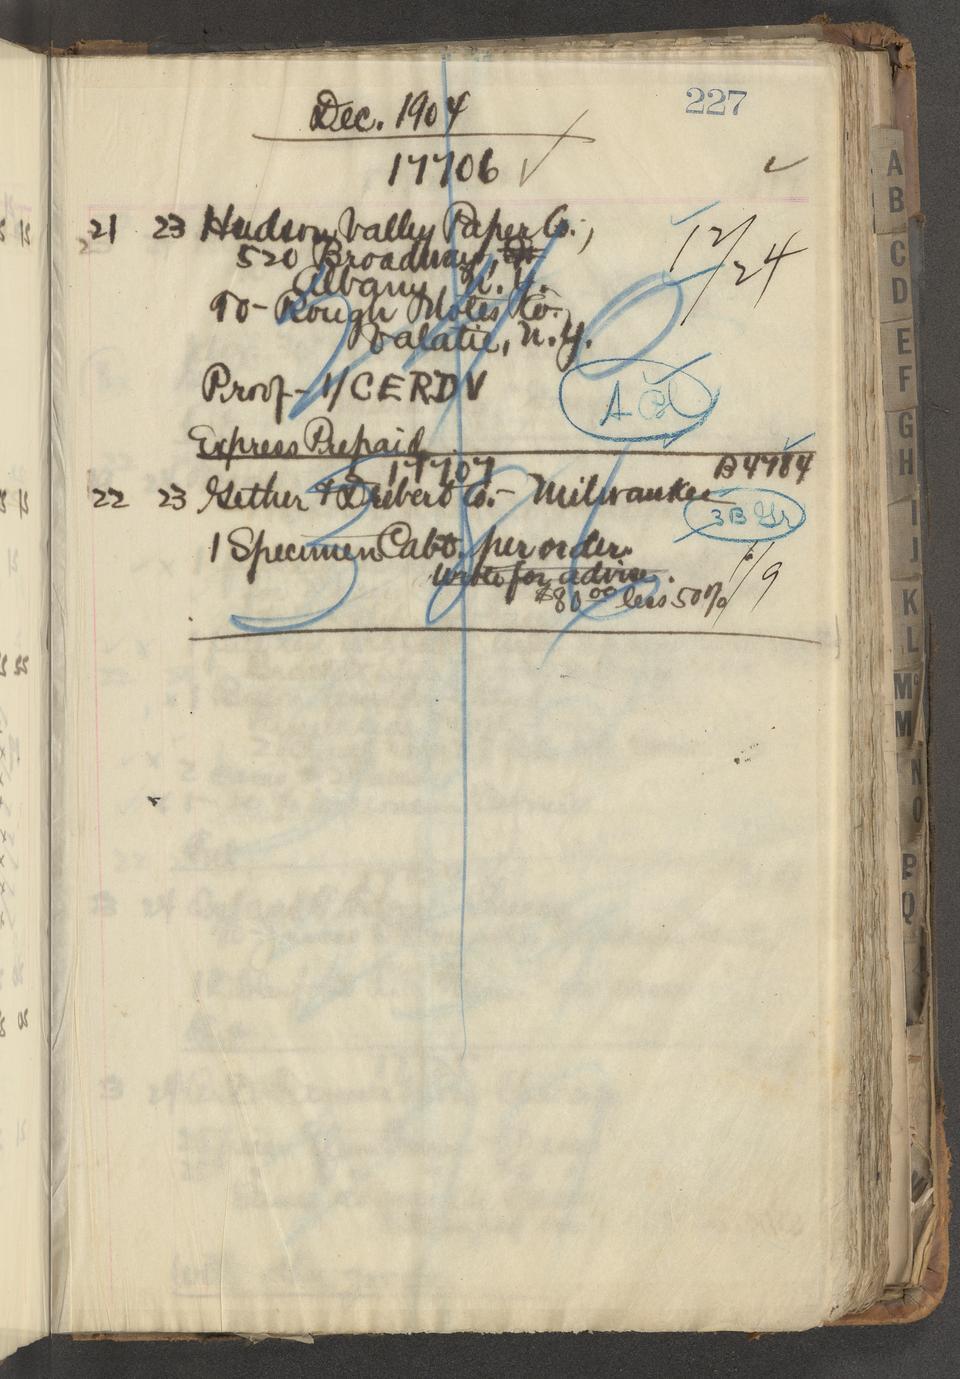 227
Dec. 1904
17706 ✓
21 23 Hudson Valley Paper Co.,
520 Broadway,
Albany N. Y.
90- Rough Notes Co.,
Valatie, N.Y.
12/24
Proof - 1/CERDV
Express Prepaid
17707
B4784
22 23 Gether & Drebert Co. - Milwaukee
3B Gr
1 Specimen Cabt. per order.
Wrote for advice.
$80.00 less 50%
1/9
A
B
C
D
E
F
G
H
I
J
K
L
Mc
M
N
O
P
Q